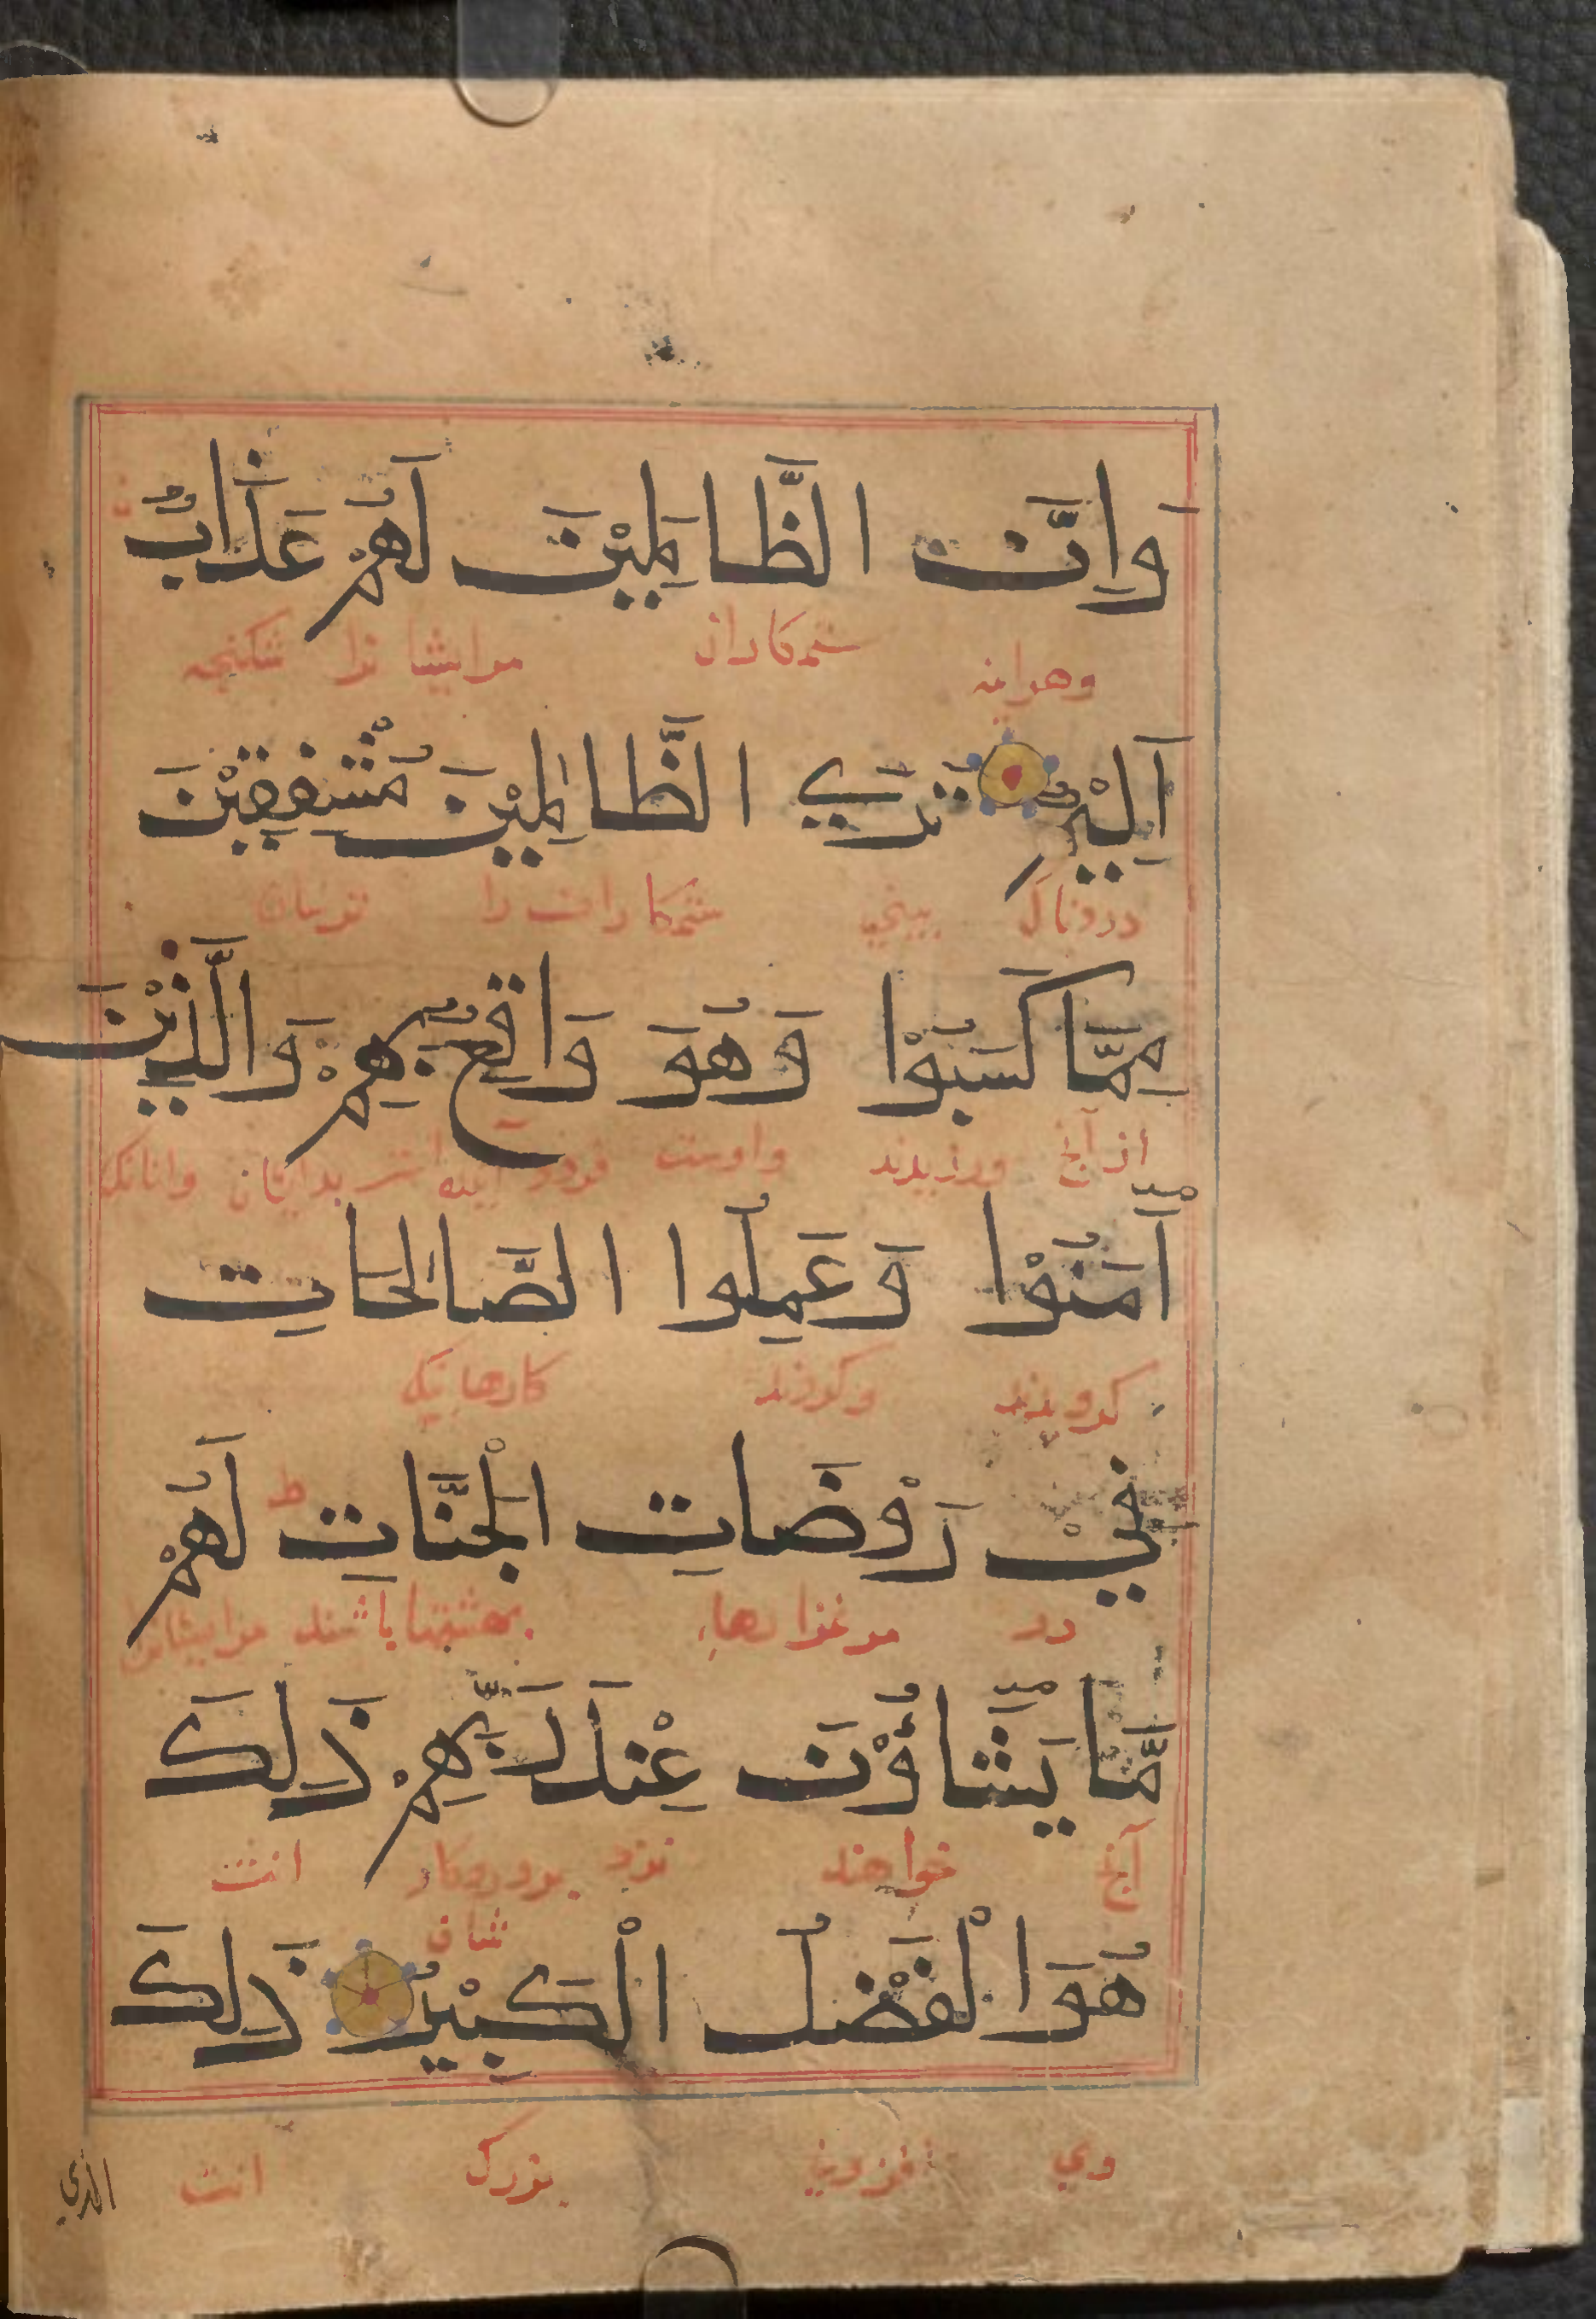 وَاِنَّ الظَّالِمِيْنَ لَهُمْ عَذَابٌ
وهراینه ستمکاران مرایشانرا شکنجه
اَلِيْمٌ تَرَي الظَّالِمِيْنَ مُشْفِقِيْنَ
دردناک ببیني ستمکارانرا ترسان
مِمَّا كَسَبُوْا وَهُوَ وَاقِعٌ بِهِمْ وَالَّذِيْنَ
از آنچ ورزیدند واوست فرود آینده بدیشان وانانک
اٰمَنُوْا وَعَمِلُوا الصَّالِحَاتِ
کرویدند وکردند کارها نیک
فِيْ رَوْضَاتِ الْجَنَّاتِ ط لَهُمْ
در مرغزارهاء بهشتها باشند مرایشانرا
مَّا يَشَاؤُنَ عِنْدَ رَبِّهِمْ ذَلِكَ
آنچ خواهند نزد پروردکار شان انست
هُوَ الْفَضْلُ الْكَبِيْرُ ذَلِكَ
وي افزوني بزرک انست
الذي